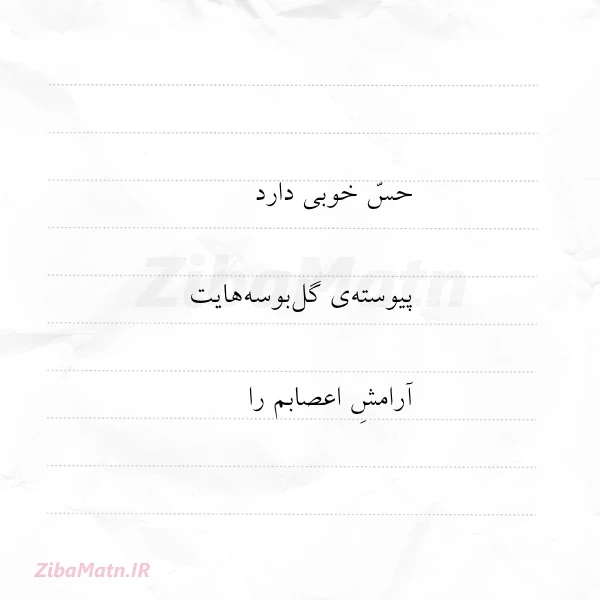 حسّ خوبی دارد
ZibaMatn
پیوسته‌ی گل‌بوسه‌هایت
آرامشِ اعصابم را
ZibaMatn.IR